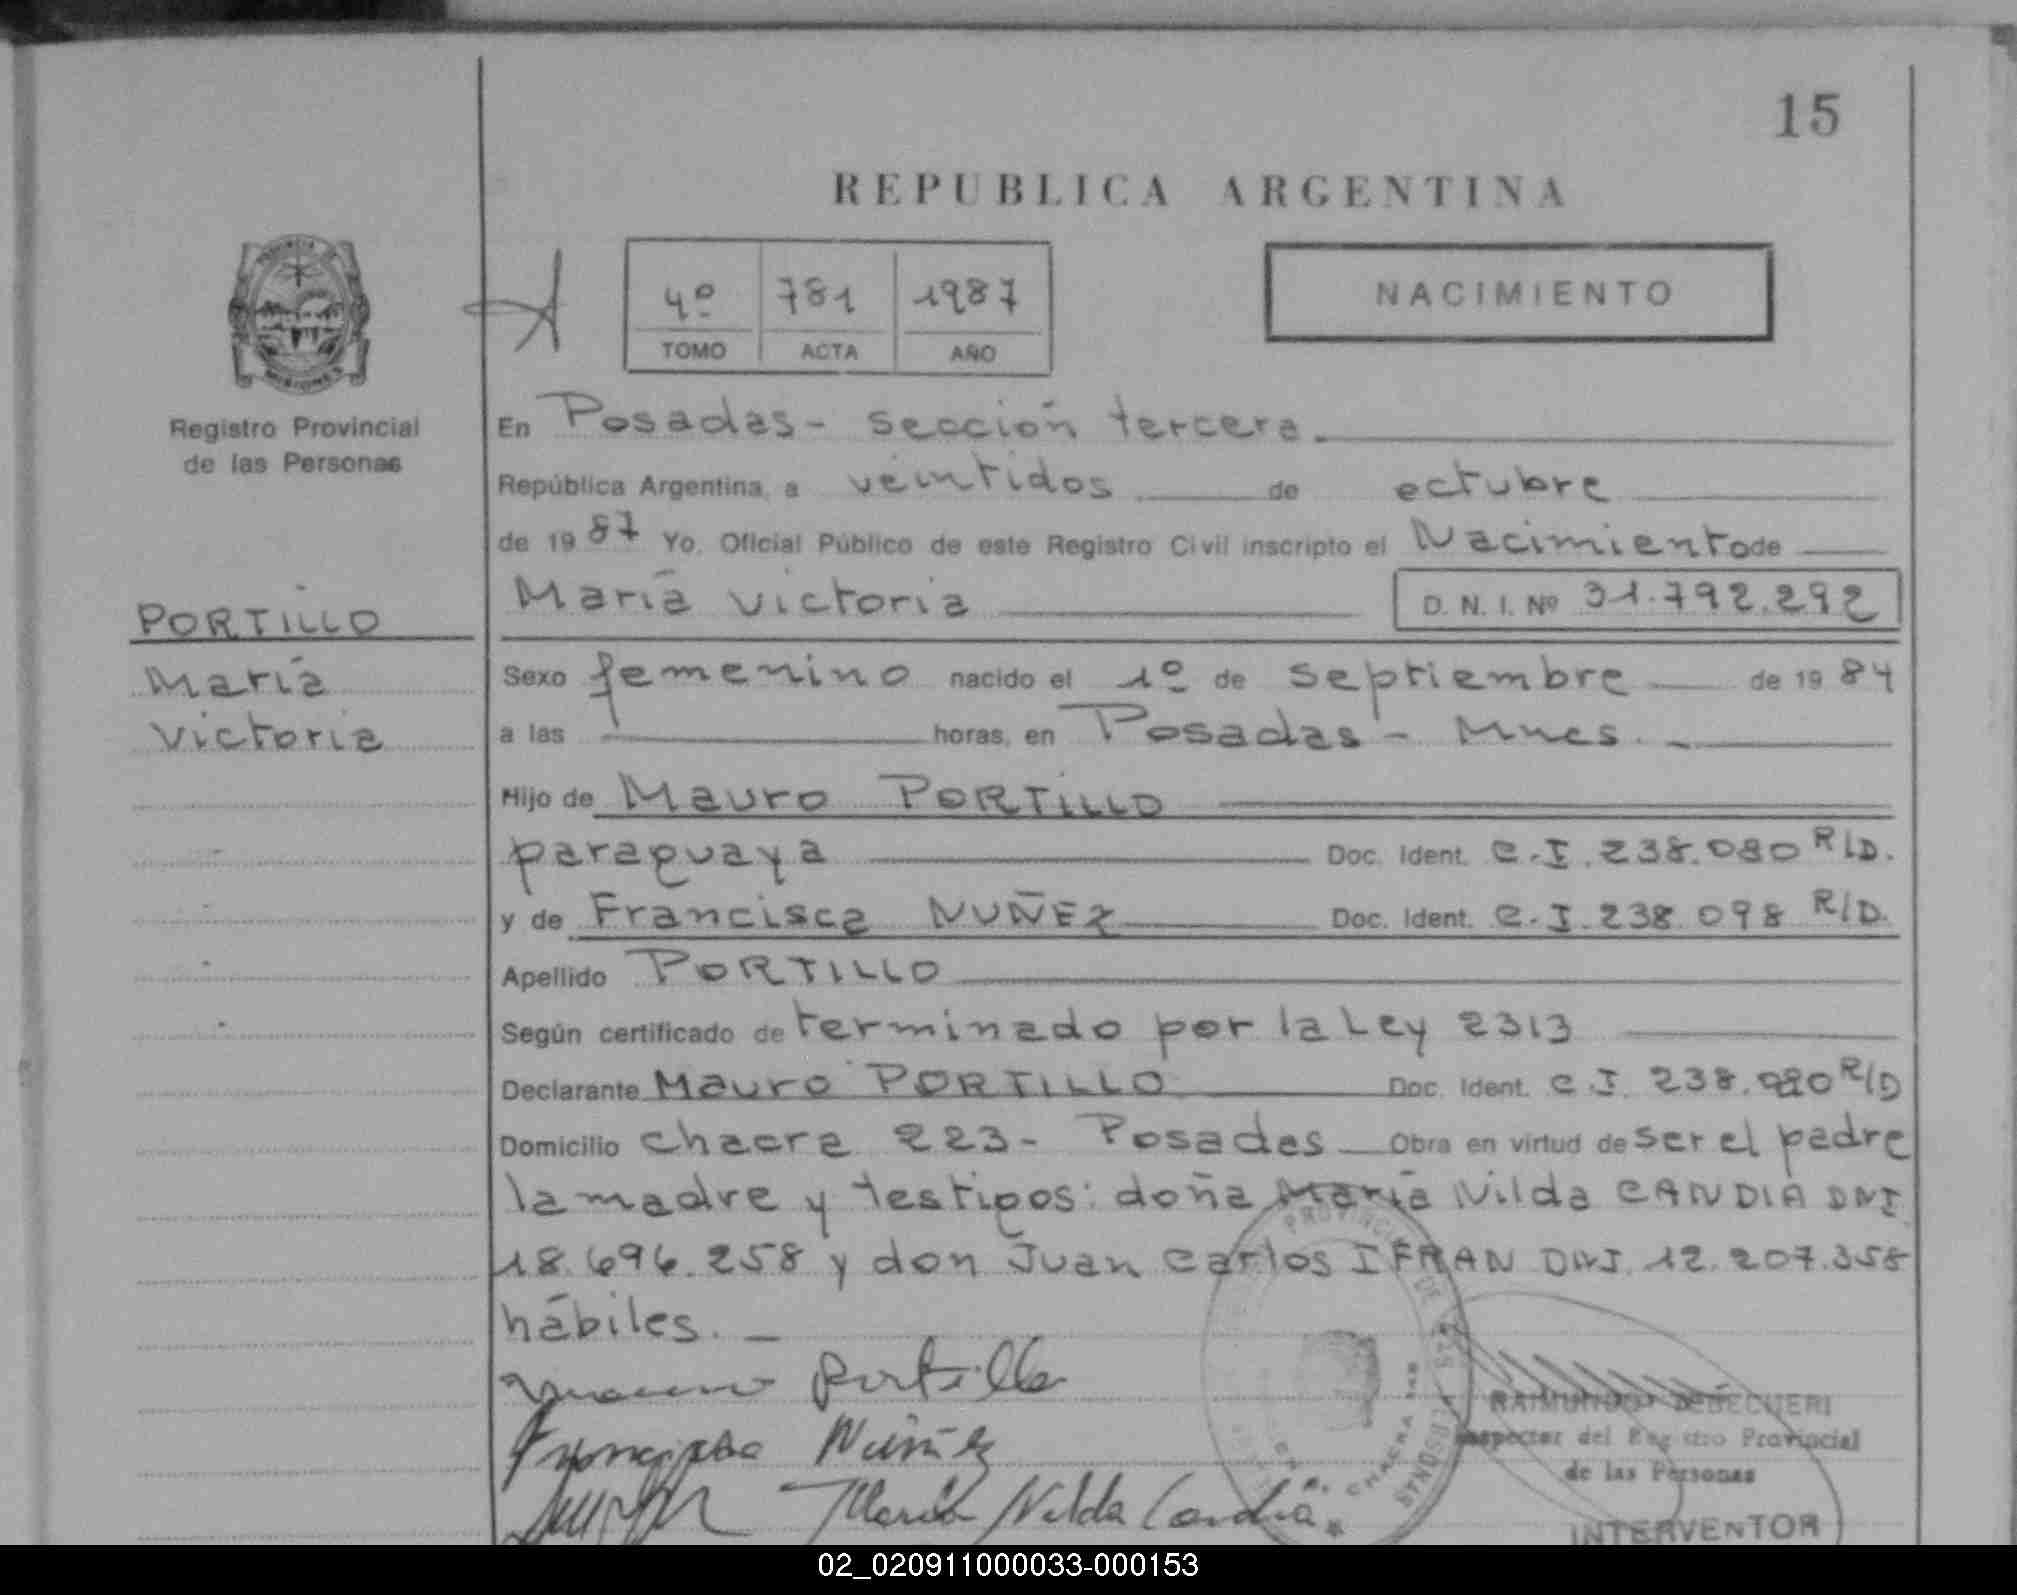 15
REPUBLICA ARGENTINA
4º 781 1987
TOMO ACTA AÑO
NACIMIENTO
PROVINCIA
MISIONES
Registro Provincial
de las Personas
PORTILLO
María
Victoria
En Posadas - sección tercera.
República Argentina, a veintidos de octubre
de 1987 Yo, Oficial Público de este Registro Civil inscripto el Nacimiento de
María Victoria D. N. I. Nº 31.792.292
Sexo femenino nacido el 1º de septiembre de 1984
a las horas, en Posadas - Mnes.
Hijo de Mauro PORTILLO
paraguaya Doc. Ident. C.I. 238.080 R/D.
y de Francisca NUÑEZ Doc. Ident. C.I. 238.098 R/D.
Apellido PORTILLO
Según certificado de terminado por la Ley 2313
Declarante Mauro PORTILLO Doc. Ident. C.I. 238.080 R/D
Domicilio chacra 223 - Posadas Obra en virtud de ser el padre
la madre y testigos: doña María Nilda CANDIA DNI
18.696.258 y don Juan Carlos IFRAN DNI. 12.207.358
hábiles.
Mauro Portillo
Francisca Nuñez
María Nilda Candia
PROVINCIAL DE LAS PERSONAS
CHACRA
RAIMUNDO
Inspector del Registro Provincial
de las Personas
INTERVENTOR
02_020911000033-000153